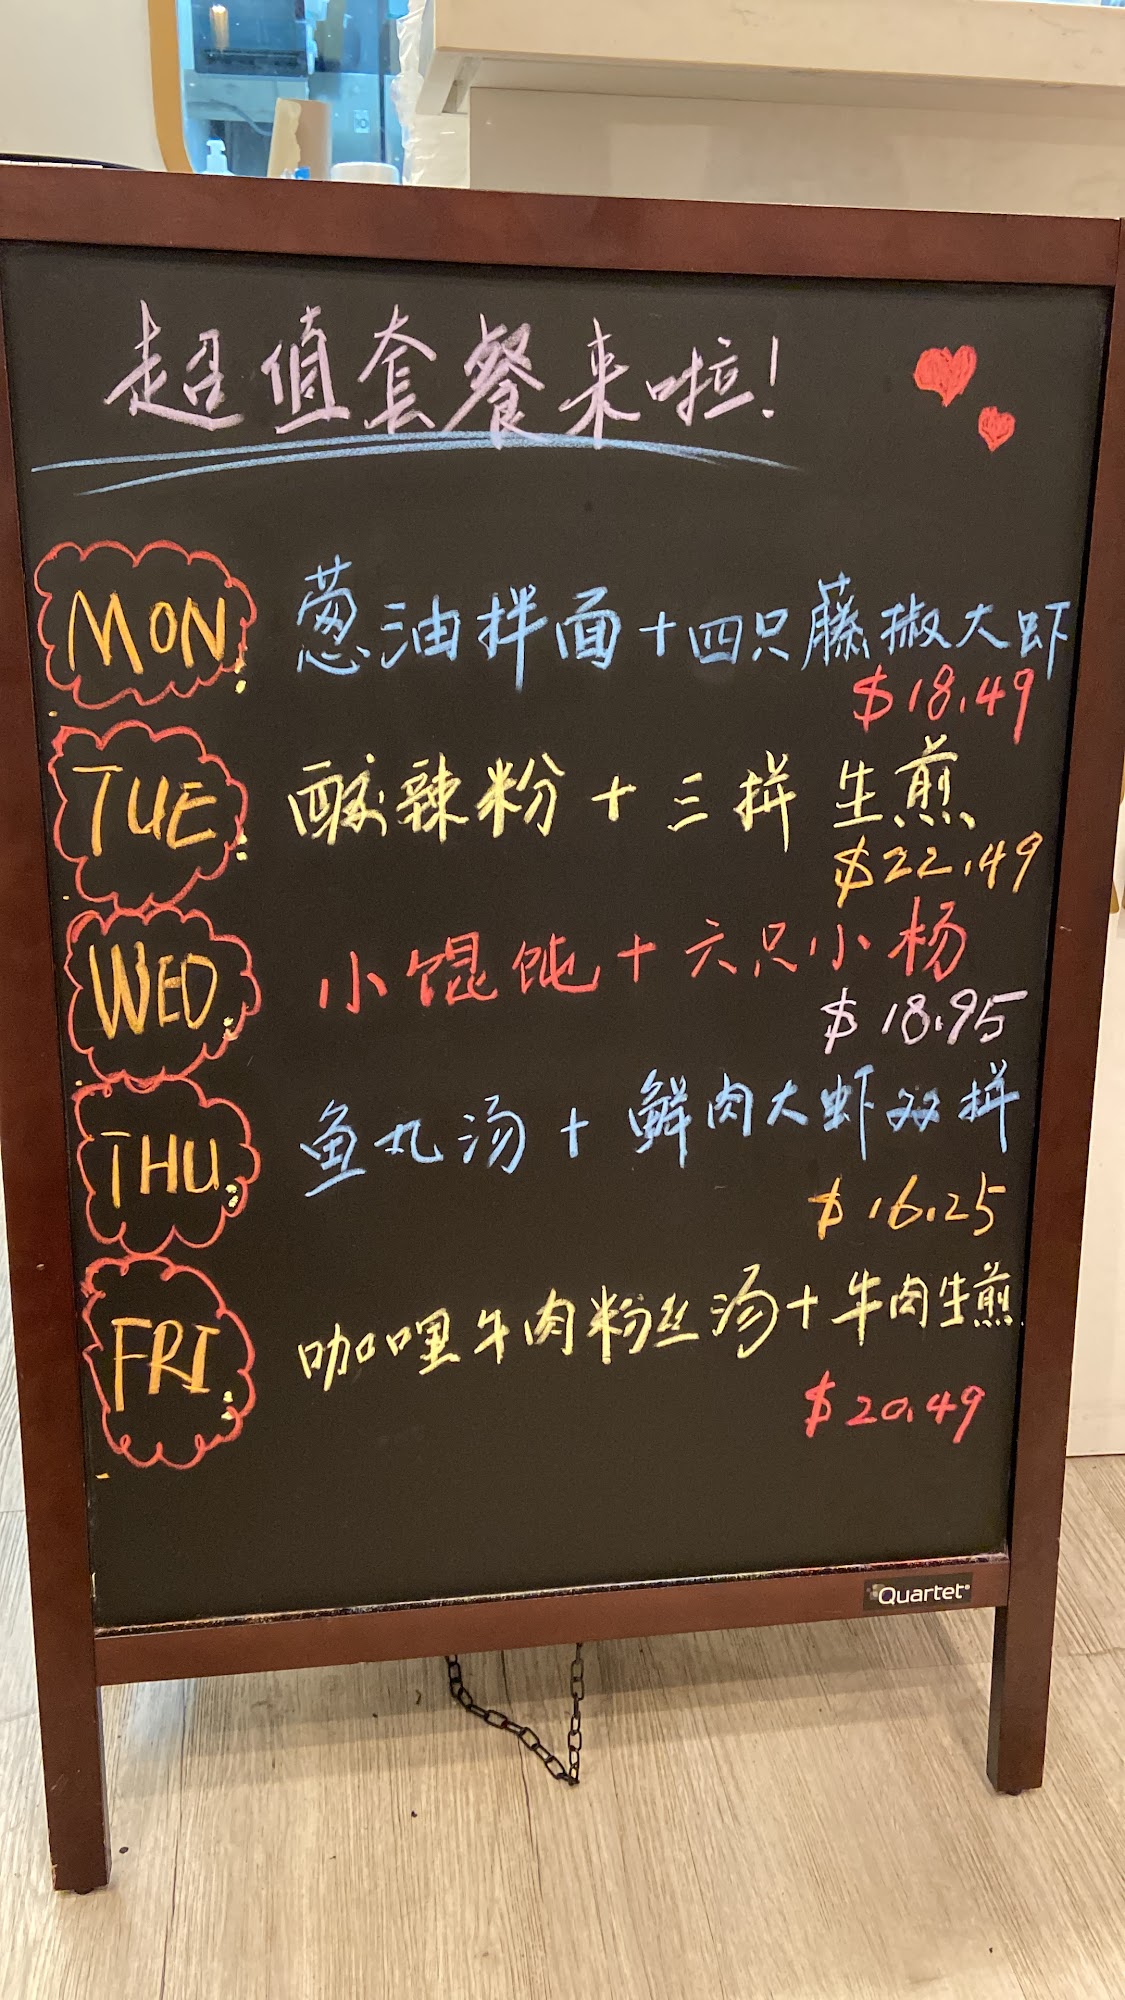 超值套餐来啦!
MON. 葱油拌面+四只藤椒大虾
$18.49
TUE. 酸辣粉+三拼生煎
$22.49
WED. 小馄饨+六只小杨
$18.95
THU. 鱼丸汤+鲜肉大虾双拼
$16.25
FRI. 咖喱牛肉粉丝汤+牛肉生煎
$20.49
Quartet